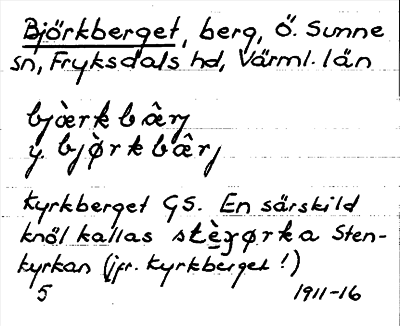 Björkberget, berg, Ö. Sunne
sn, Fryksdals hd, Värml. län
bjæ̀rkbærj
y. bjø̀rkbærj
Kyrkberget GS. En särskild
knöl kallas stèȷørka Sten-
kyrkan (jfr. Kyrkberget!)
5 1911-16